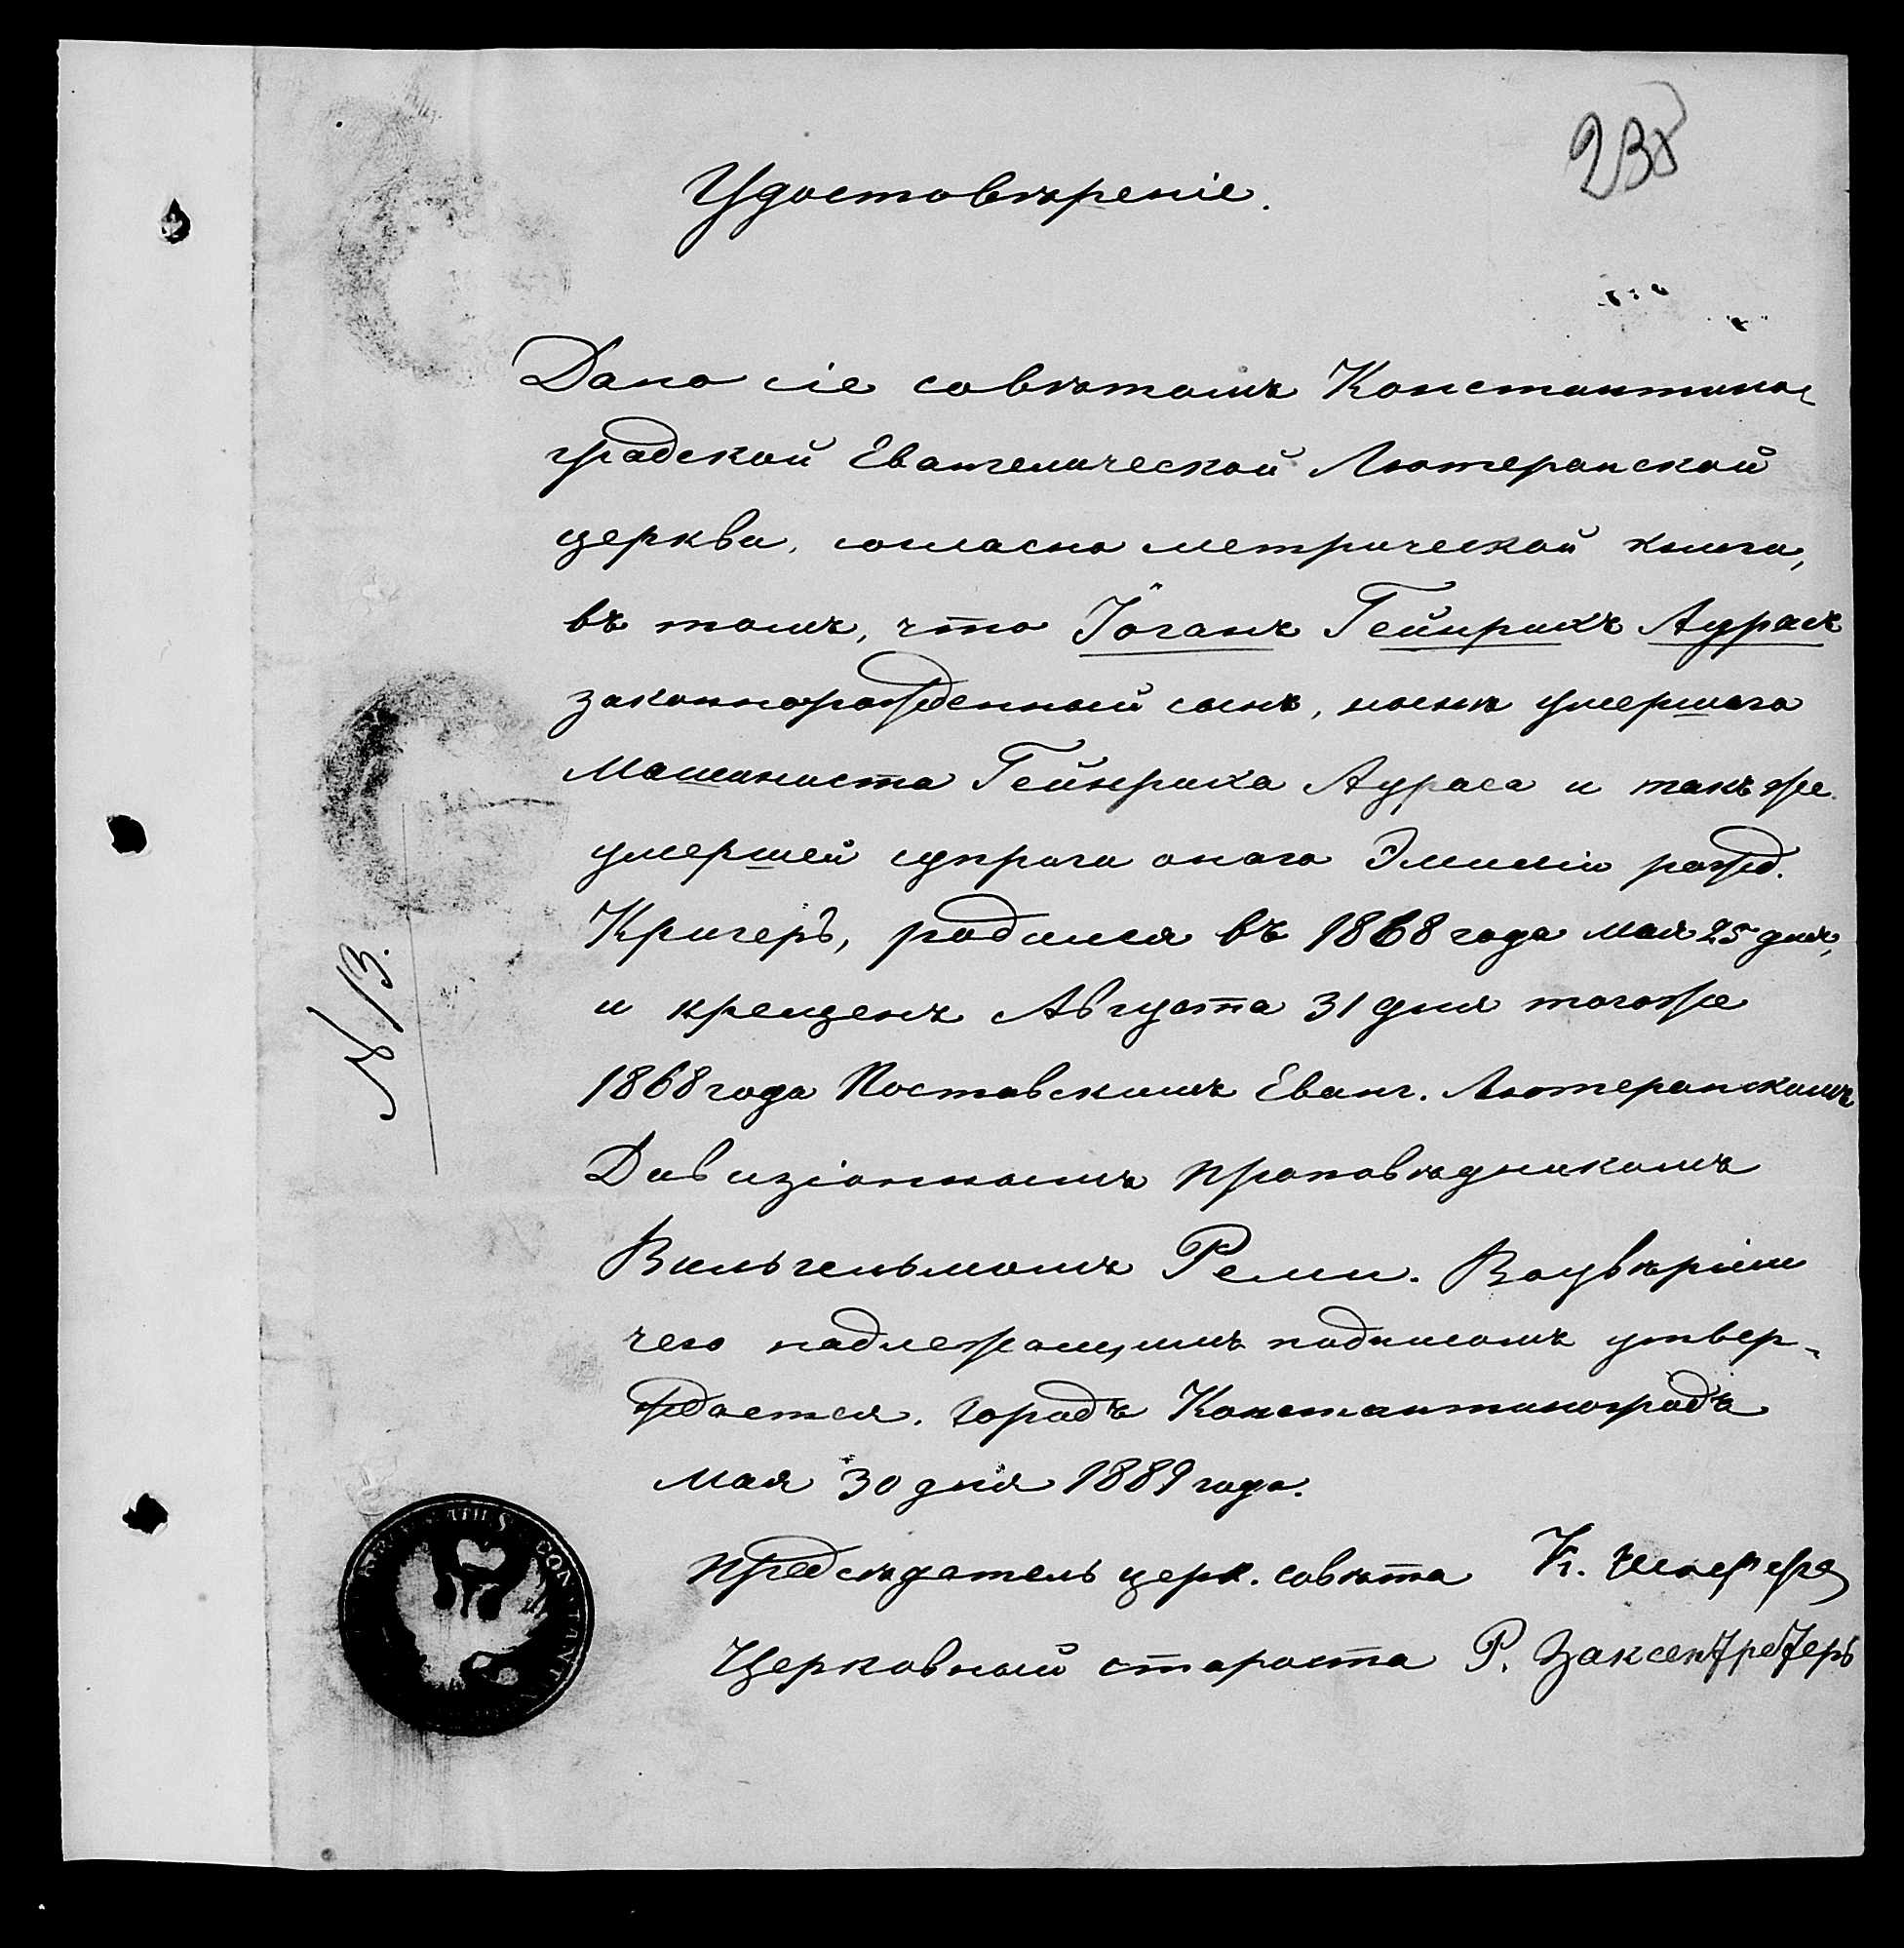 238
Удостовѣреніе.
Дано сіе совѣтомъ Константино-
градской Евангелической Лютеранской
церкви, согласно метрической книги,
въ томъ, что Іоганъ Гейнрихъ Аурасъ
законнорожденный сынъ, нынѣ умершаго
Машиниста Гейнриха Аураса и такъ же
умершей супруги онаго Эмиліи рожд.
Кригеръ, родился въ 1868 года мая 25 дня,
и крещенъ Августа 31 дня тогоже
1868 года Полтавскимъ Еванг. Лютеранскимъ
Дивизіоннымъ проповѣдникомъ
Вильгельмомъ Реми. Воувѣріи
чего надлежащимъ подписомъ утвер-
ждается. городъ Константиноградъ
мая 30 дня 1889 года.
Предсѣдатель церк. совѣта К.
Церковный староста Р. Заксендреферъ
№ 13.